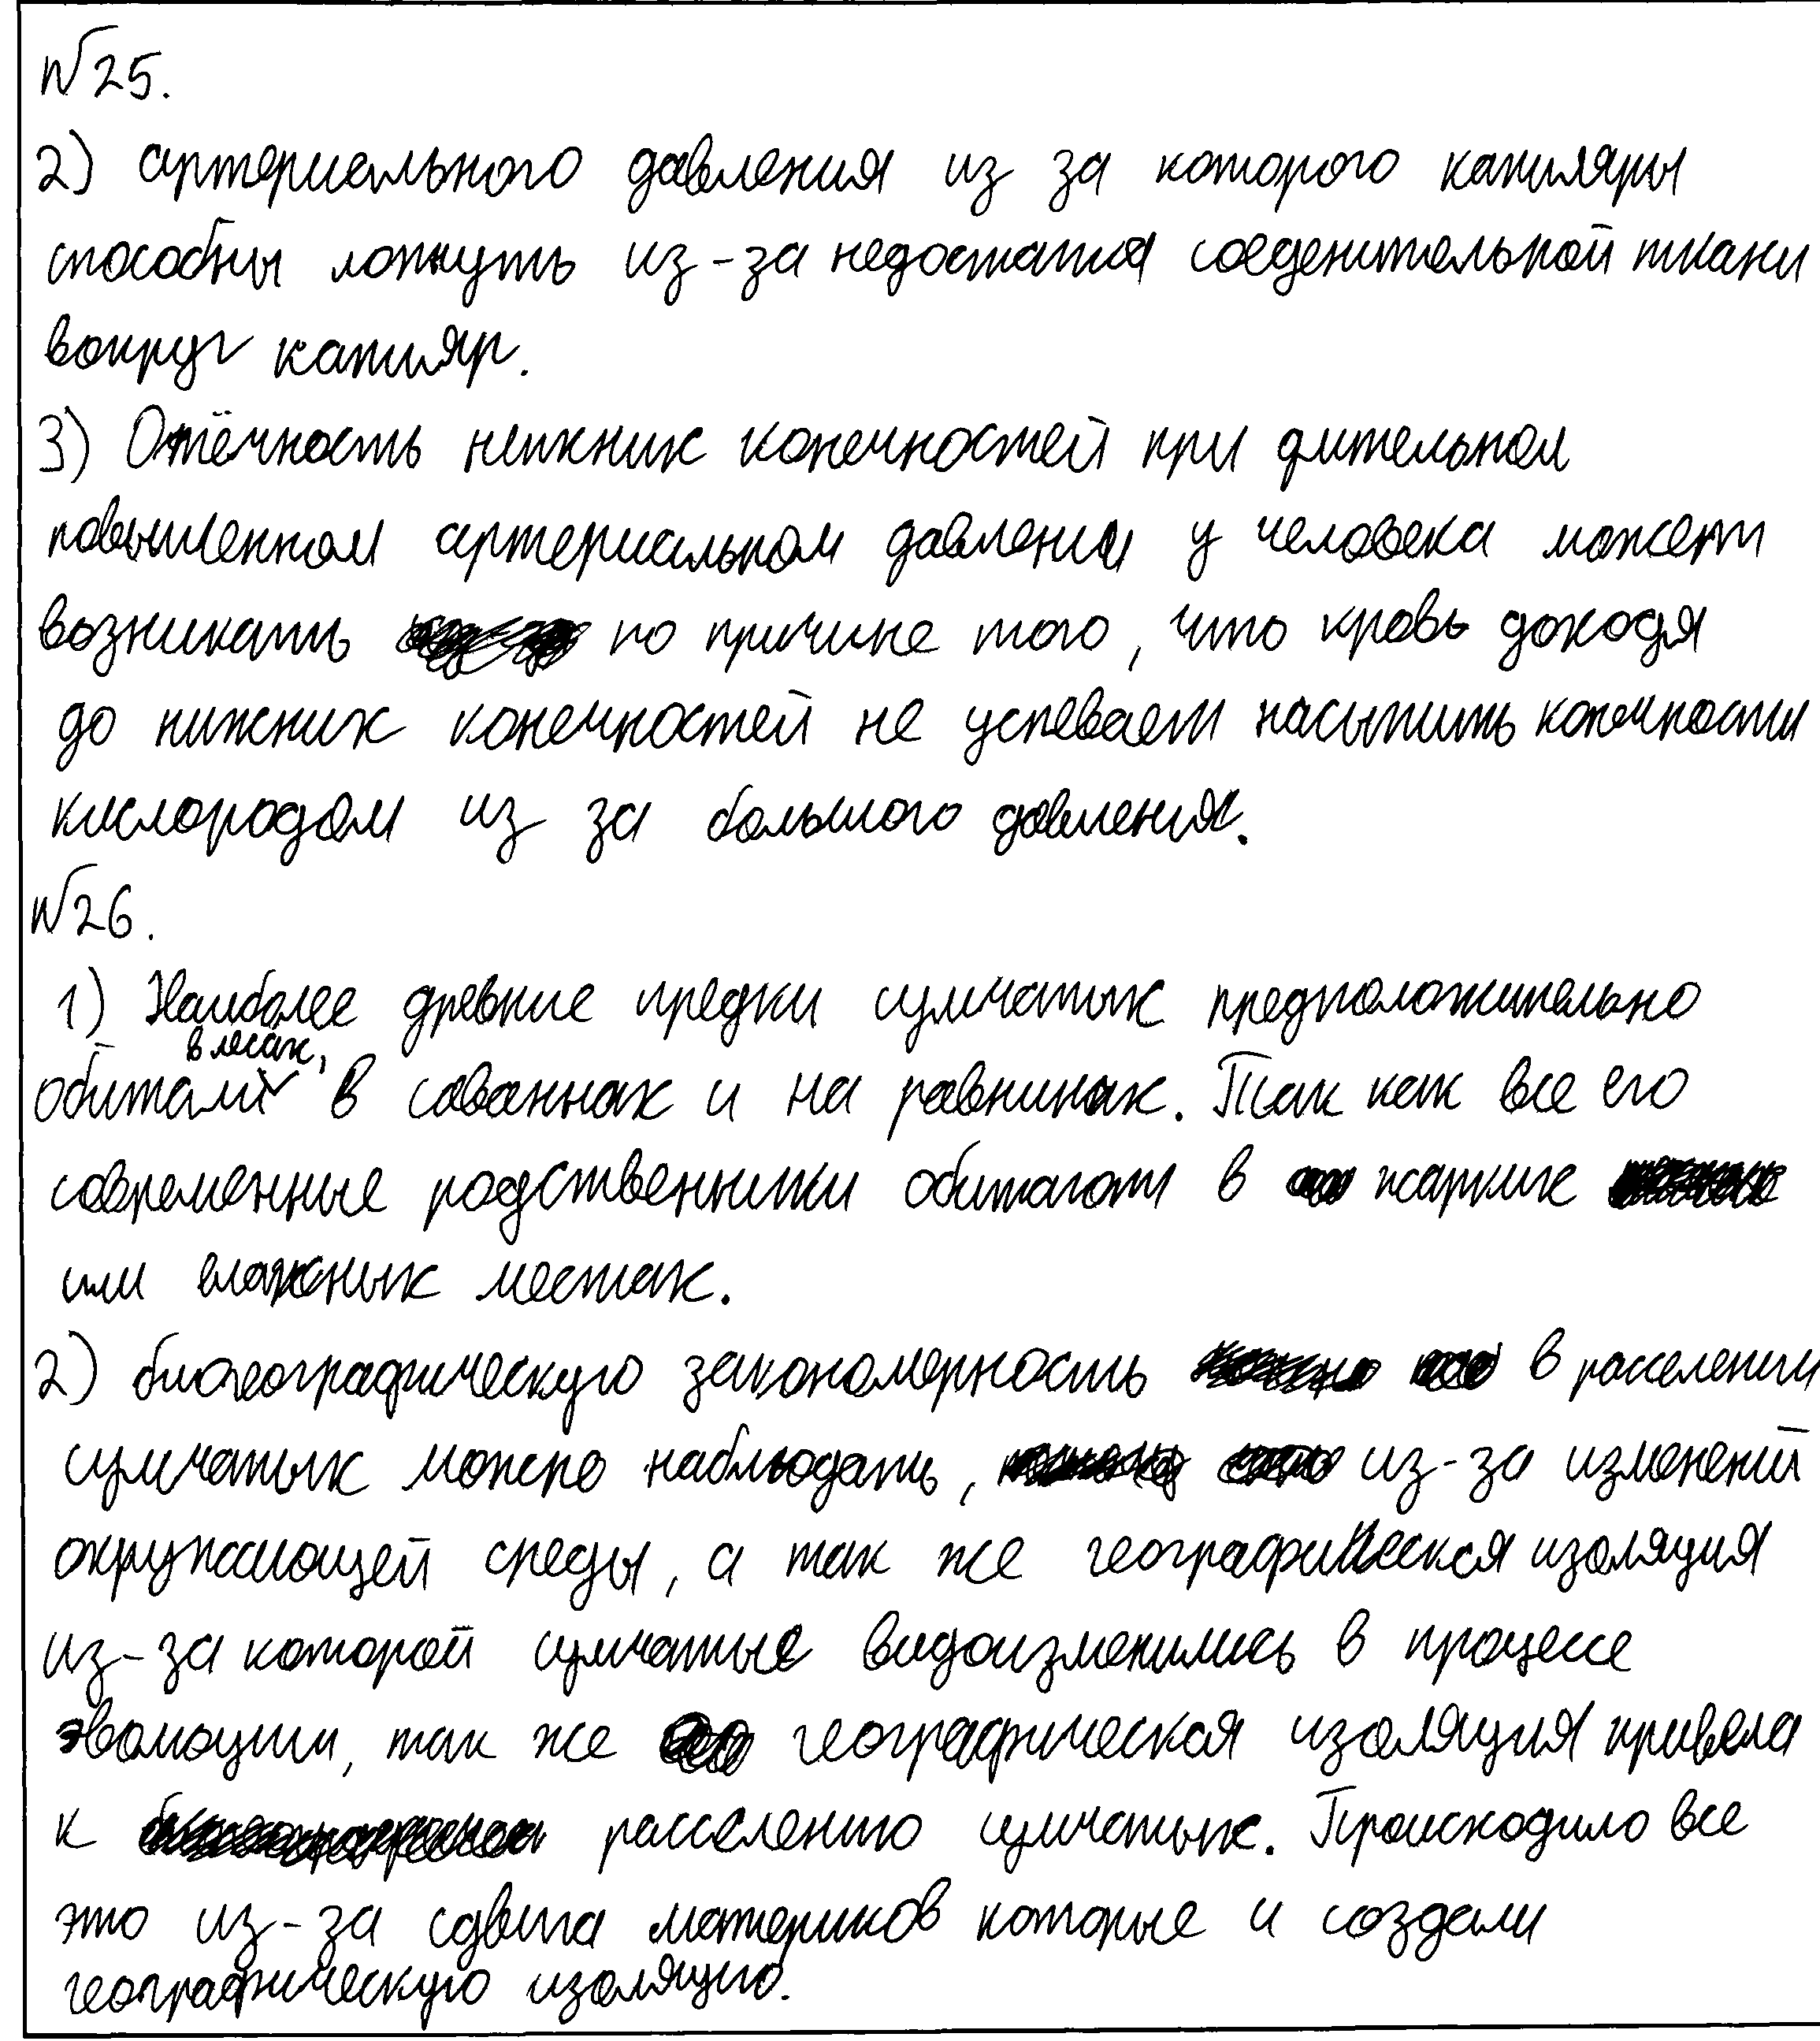 №25.
2) артериального давления из за которого капиляры
способны лопнуть из-за недостатка соеденительной ткани
вокруг капиляр.
3) Отёчность нижних конечностей при длительном
повышенном артериальном давлении у человека может
возникать по причине того, что кровь доходя
до нижних конечностей не успевает насытить конечности
кислородом из за большого давления.
№26.
1) Наиболее древние предки сумчатых предположительно
в лесах,
обитали в саваннах и на равнинах. Так как все его
современные родственники обитают в жарких
или влажных местах.
2) биогеографическую закономерность в расселении
сумчатых можно наблюдать, из-за изменений
окружающей среды, а так же географическая изоляция
из-за которой сумчатые видоизменились в процессе
эволюции, так же географическая изоляция привела
к расселению сумчатых. Происходило все
это из-за сдвига материков которые и создали
географическую изоляцию.